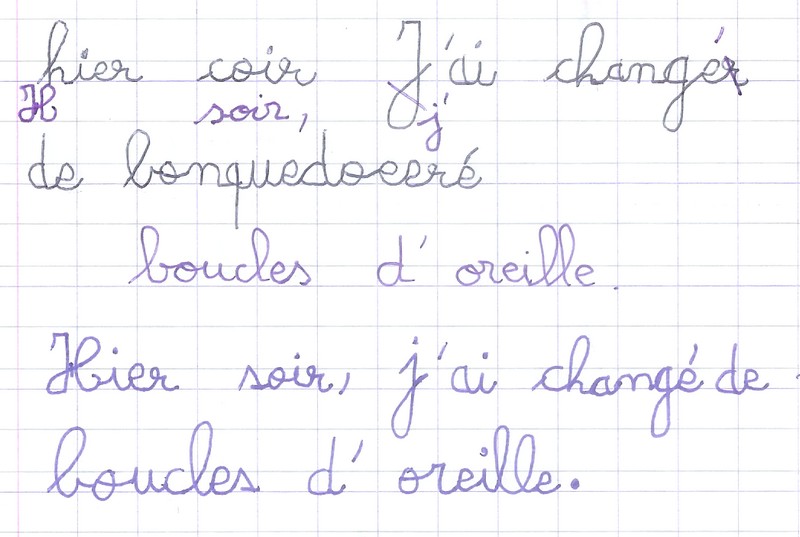 hier coir J'ai changér
H soir, j'
de bonquedoeeré
boucles d'oreille.
Hier soir, j'ai changé de
boucles d'oreille.